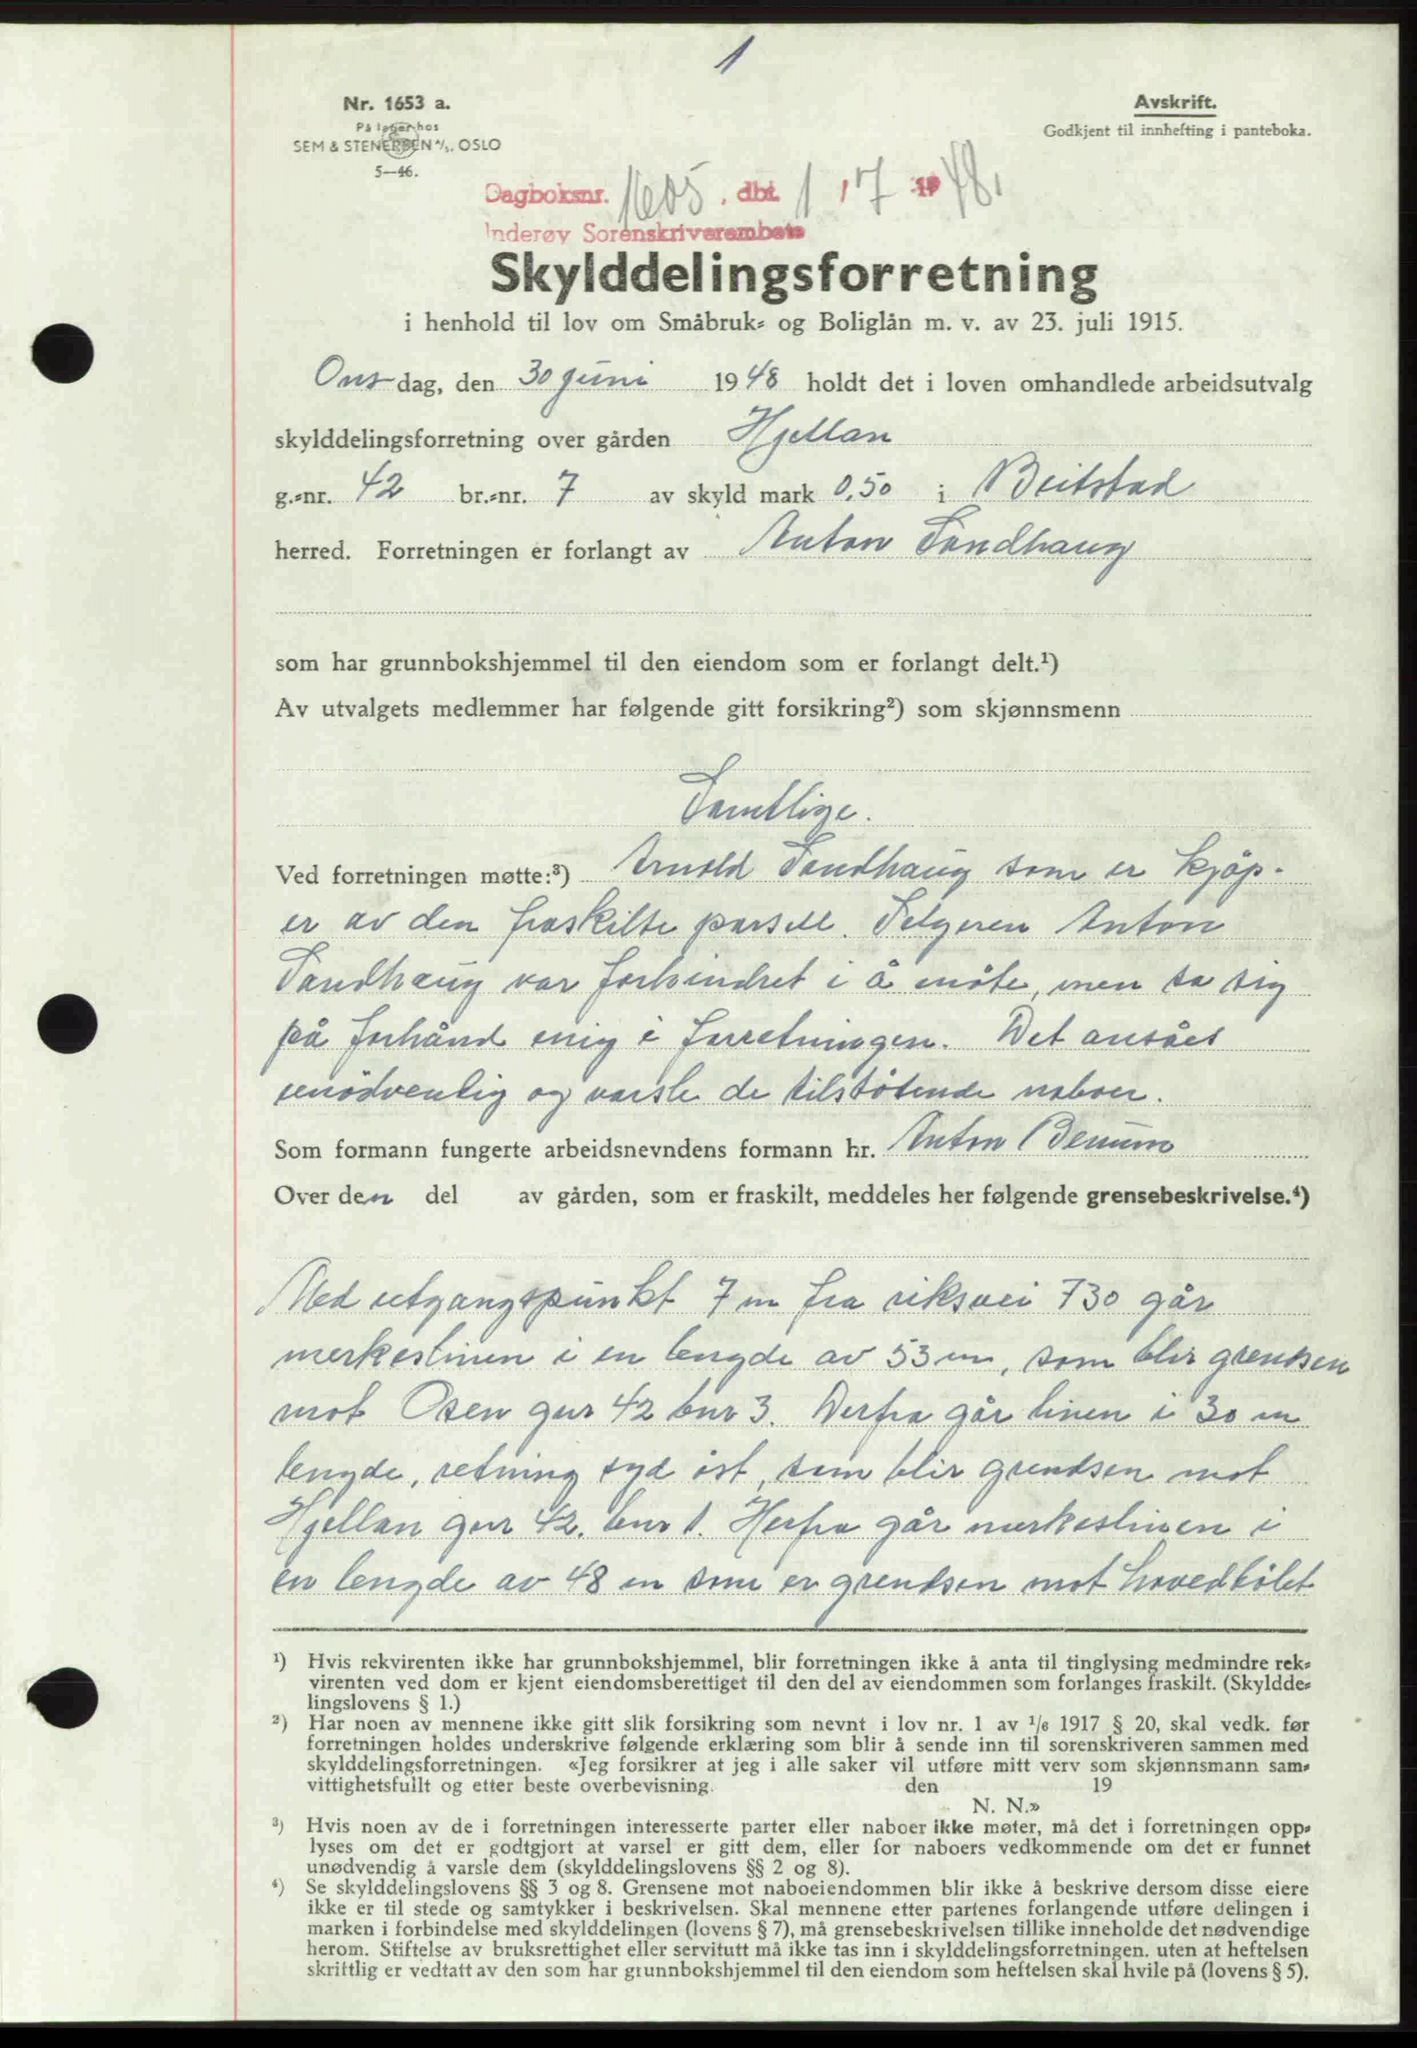 1
Nr. 1653 a.
På lager hos
SEM & STENERSEN A/S. OSLO
5—46.
Avskrift.
Godkjent til innhefting i panteboka.
Dagboksnr. 1605, dbt. 1 / 7 1948.
Inderøy Sorenskriverembete
Skylddelingsforretning
i henhold til lov om Småbruk- og Boliglån m. v. av 23. juli 1915.
Ons dag, den 30 juni 1948 holdt det i loven omhandlede arbeidsutvalg
skylddelingsforretning over gården Hjellan
g.-nr. 42 br.-nr. 7 av skyld mark 0,50 i Beitstad
herred. Forretningen er forlangt av Anton Sandhaug
som har grunnbokshjemmel til den eiendom som er forlangt delt.¹)
Av utvalgets medlemmer har følgende gitt forsikring²) som skjønnsmenn
Samtlige.
Ved forretningen møtte:³) Arnold Sandhaug som er kjöp-
er av den fraskilte parsell. Selgeren Anton
Sandhaug var forhindret i å møte, men sa sig
på forhånd enig i forretningen. Det ansåes
unödvenlig og varsle de tilstøtende naboer.
Som formann fungerte arbeidsnevndens formann hr. Anton Benum
Over den del av gården, som er fraskilt, meddeles her følgende grensebeskrivelse.⁴)
Med utgangspunkt 7 m fra riksvei 730 går
merkeslinen i en lengde av 53 m, som blir grendsen
mot Osen gnr 42 bnr 3. Derfra går linen i 30 m
lengde, retning syd øst, som blir grendsen mot
Hjellan gnr 42. bnr 1. Herfra går merkeslinen i
en lengde av 48 m som er grendsen mot hovedbølet
¹) Hvis rekvirenten ikke har grunnbokshjemmel, blir forretningen ikke å anta til tinglysing medmindre rek-
virenten ved dom er kjent eiendomsberettiget til den del av eiendommen som forlanges fraskilt. (Skyldde-
lingslovens § 1.)
²) Har noen av mennene ikke gitt slik forsikring som nevnt i lov nr. 1 av 1/6 1917 § 20, skal vedk. før
forretningen holdes underskrive følgende erklæring som blir å sende inn til sorenskriveren sammen med
skylddelingsforretningen. «Jeg forsikrer at jeg i alle saker vil utføre mitt verv som skjønnsmann sam-
vittighetsfullt og etter beste overbevisning. den 19
N. N.»
³) Hvis noen av de i forretningen interesserte parter eller naboer ikke møter, må det i forretningen opp-
lyses om det er godtgjort at varsel er gitt dem, eller for naboers vedkommende om det er funnet
unødvendig å varsle dem (skylddelingslovens §§ 2 og 8).
⁴) Se skylddelingslovens §§ 3 og 8. Grensene mot naboeiendommen blir ikke å beskrive dersom disse eiere
ikke er til stede og samtykker i beskrivelsen. Skal mennene etter partenes forlangende utføre delingen i
marken i forbindelse med skylddelingen (lovens § 7), må grensebeskrivelsen tillike inneholde det nødvendige
herom. Stiftelse av bruksrettighet eller servitutt må ikke tas inn i skylddelingsforretningen, uten at heftelsen
skriftlig er vedtatt av den som har grunnbokshjemmel til den eiendom som heftelsen skal hvile på (lovens § 5).